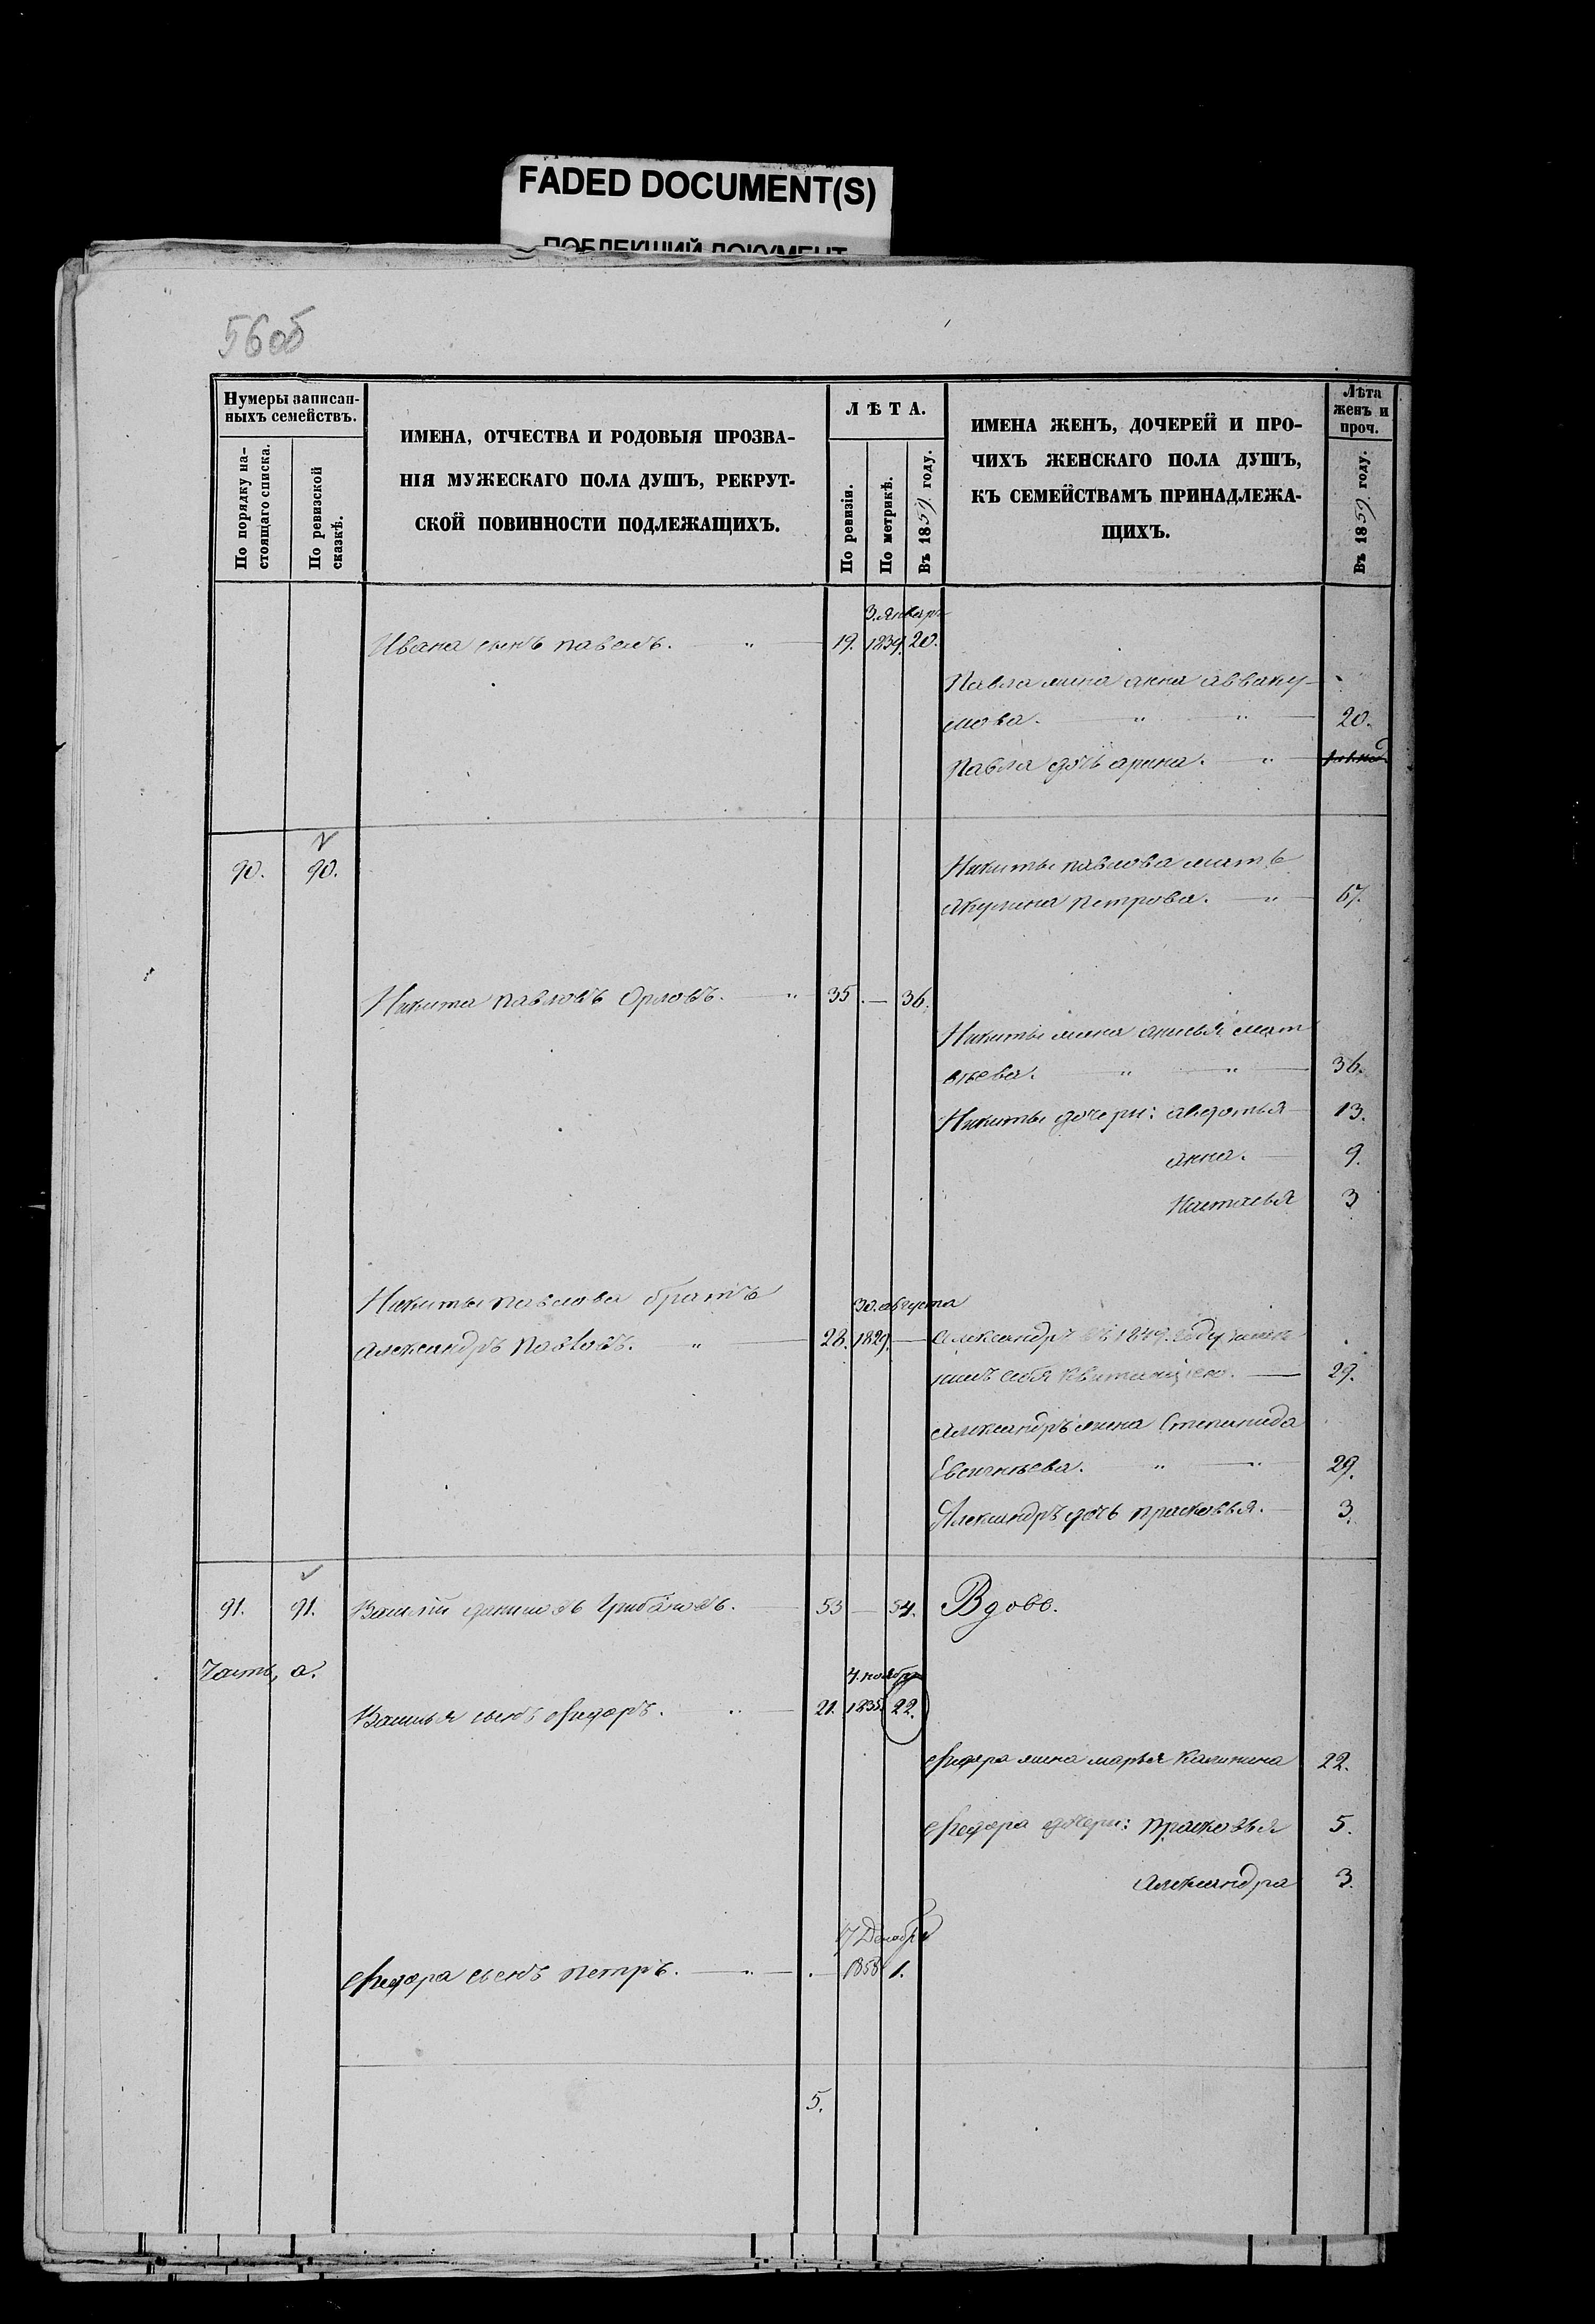 FADED DOCUMENT(S)
ПОБЛЕКШИЙ ДОКУМЕНТ
56об
Нумеры записан-
ныхъ семействъ.
По порядку на-
стоящаго списка.
По ревизской
сказкѣ.
ИМЕНА, ОТЧЕСТВА И РОДОВЫЯ ПРОЗВА-
НІЯ МУЖЕСКАГО ПОЛА ДУШЪ, РЕКРУТ-
СКОЙ ПОВИННОСТИ ПОДЛЕЖАЩИХЪ.
ЛѢТА.
По ревизіи.
По метрикѣ.
Въ 1859 году.
ИМЕНА ЖЕНЪ, ДОЧЕРЕЙ И ПРО-
ЧИХЪ ЖЕНСКАГО ПОЛА ДУШЪ,
КЪ СЕМЕЙСТВАМЪ ПРИНАДЛЕЖА-
ЩИХЪ.
Лѣта
женъ и
проч.
Въ 1859 году.
3. Январ
Ивана сынъ павелъ. 19. 1839. 20.
Павла жина анна авваку-
мова. 20.
Павла дочь арина.
90. 90. Никиты павлова мать
Акулина петрова. 67.
Никита павловъ Орловъ. 35. — 36.
Никиты жина анисья мат
вѣева. 36.
Никиты дочери: авдотья 13.
анна. 9.
Настасья 3
Никиты павлова братъ 30. августа
александръ павловъ. 28. 1829. — Александръ въ 1849. году
себя квитанціею. 29.
Александръ жина Степанида
29.
Александръ дочь прасковья. 3.
91. 91. Василій даниловъ Грибановъ. 53 — 54. Вдовъ.
Часть, а. 4. ноября
Василья сынъ Федоръ. 21. 1835. 22.
Федора жина марья Калинина 22.
Федора дочери: прасковья 5.
Александра 3.
17 Декабря
Федора сынъ петръ. — 1858 1.
5.